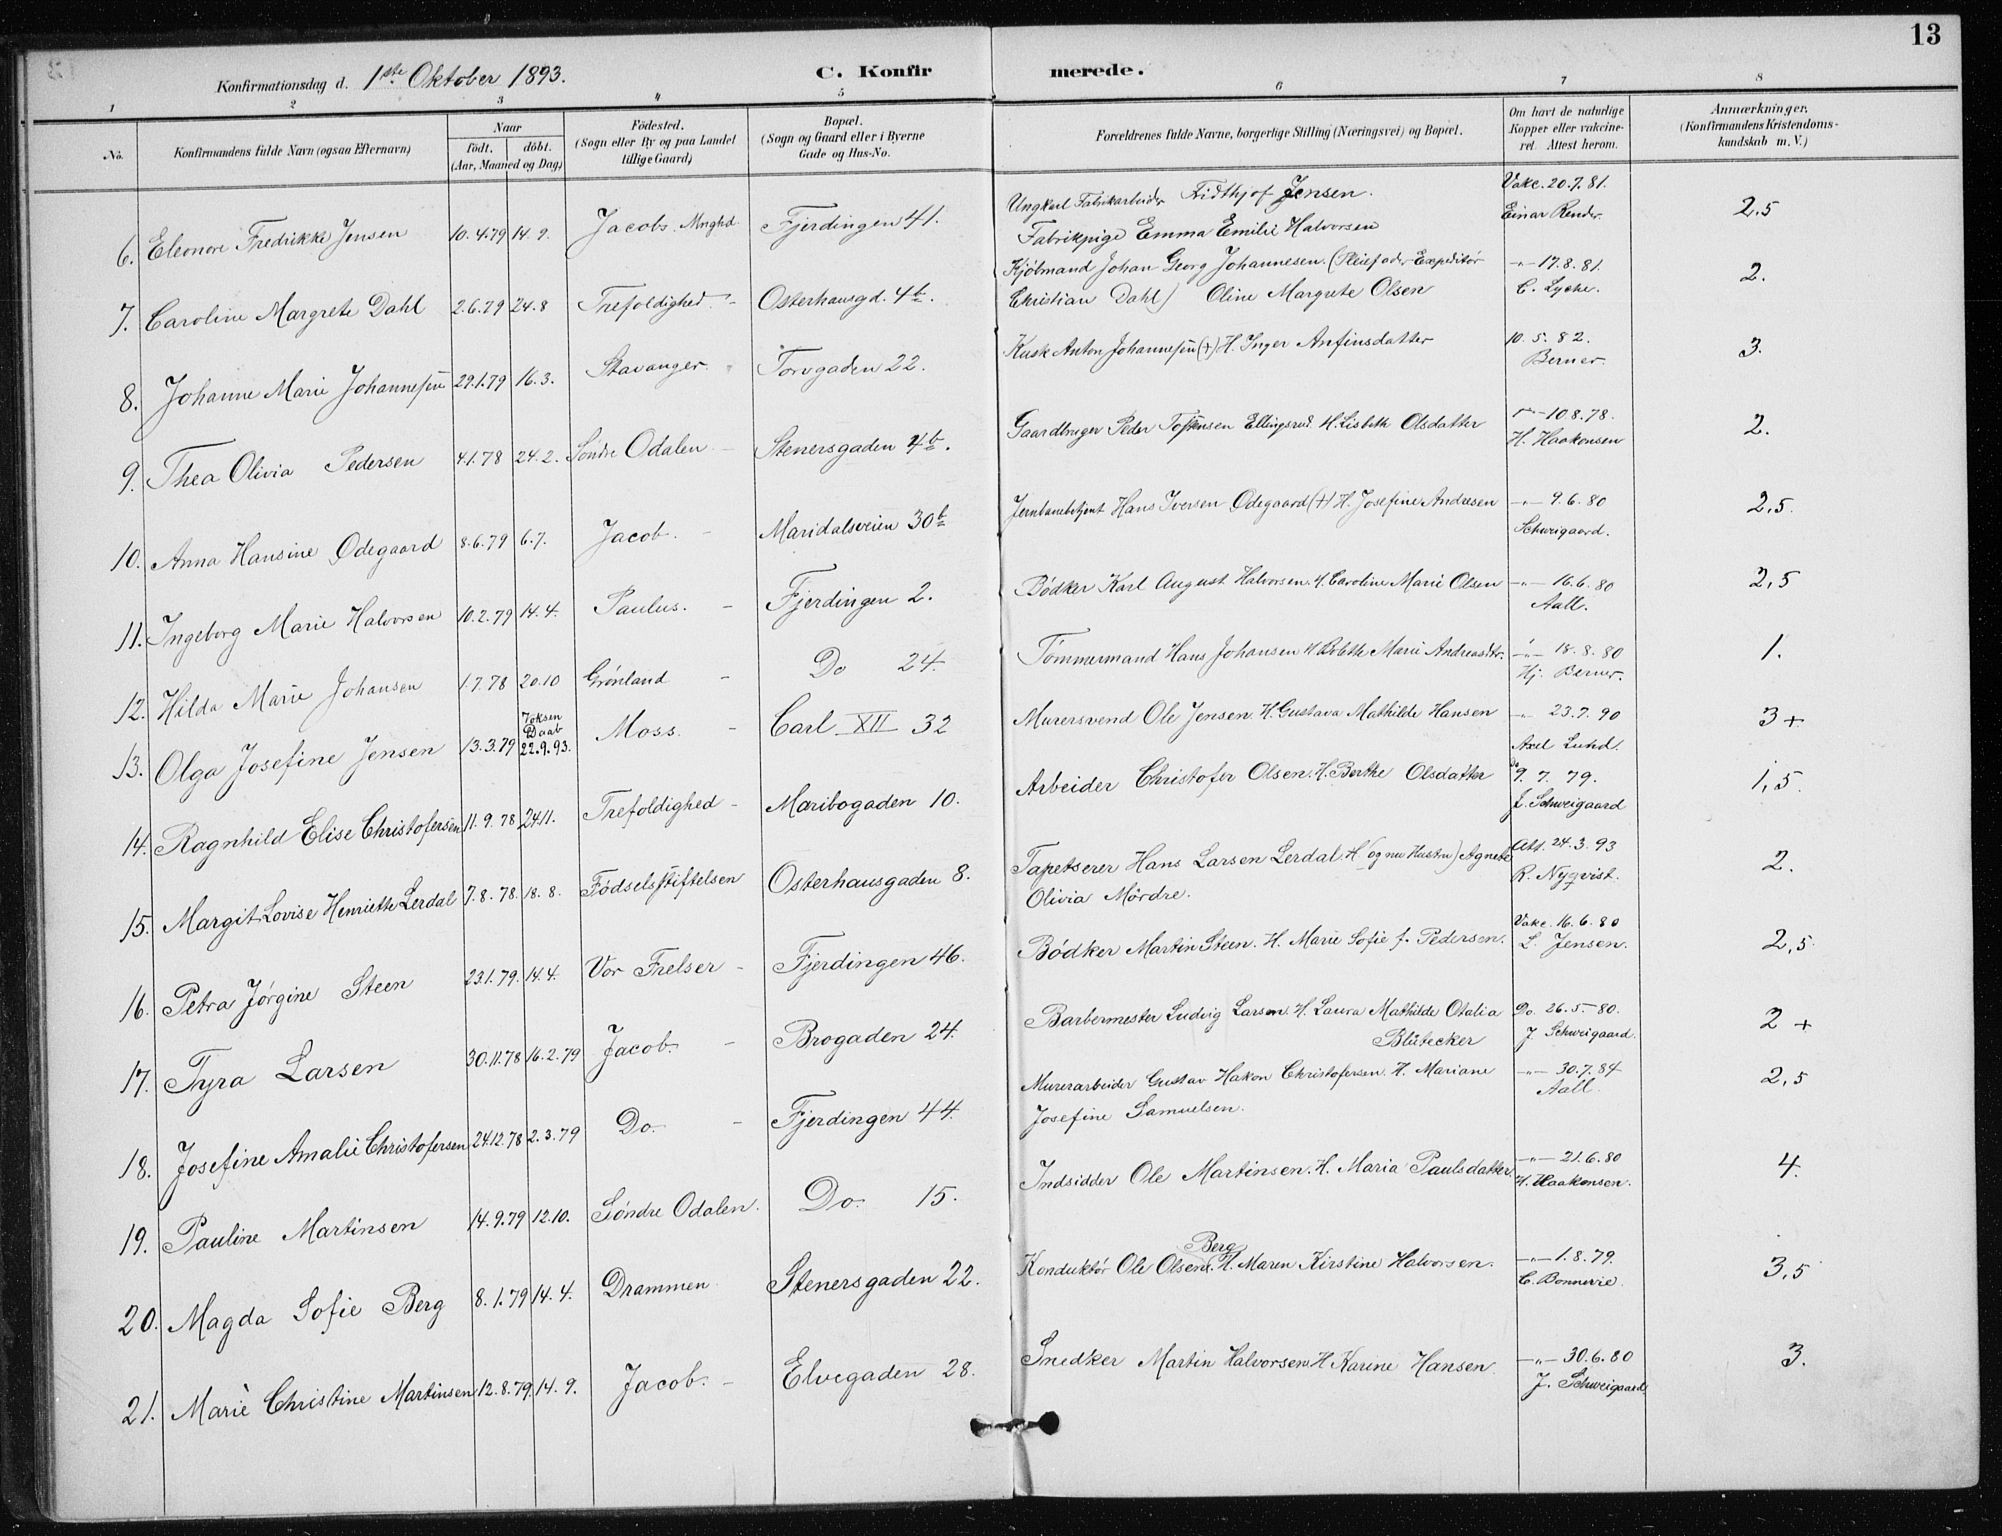 13
Konfirmationsdag d. 1ste Oktober 1893. C. Konfirmerede.
1 2 3 4 5 6 7 8
No. Konfirmandens fulde Navn (ogsaa Efternavn) Naar födt. döbt. (Aar, Maaned og Dag) Födested. (Sogn eller By og paa Landet tillige Gaard) Bopæl. (Sogn og Gaard eller i Byerne Gade og Hus-No. Forældrenes fulde Navne, borgerlige Stilling (Næringsvei) og Bopæl. Om havt de naturlige Kopper eller vakcineret. Attest herom. Anmærkninger. (Konfirmandens Kristendomskundskab m. V.)
6. Eleonore Fredrikke Jensen 10.4.79 14.9. Jacobs Mnghd. Fjerdingen 41. Ungkarl Fabrikarbeider Fidthjof Jensen. Vakc. 20.7.81. 2,5
Fabrikpige Emma Emilie Halvorsen Einar Render.
7. Caroline Margrete Dahl 2.6.79 24.8 Trefoldighed - Osterhausgd. 4b. Kjöbmand Johan Georg Johannesen. (Pleiefader Expeditör -"- 17.8.81. 2.
Christian Dahl) Oline Margrete Olsen C. Lyche.
8. Johanne Marie Johannesen 29.1.79 16.3. Stavanger. Torvgaden 22. Kusk Anton Johannesen (+) H. Inger Anfinsdatter 10.5.82. 3.
Berner.
9. Thea Olivia Pedersen 4.1.78 24.2. Söndre Odalen - Stenersgaden 4b. Gaardbruger Peder Ellingsrud. H. Lisbeth Olsdatter -"- 10.8.78. 2.
H. Haakonsen
10. Anna Hansine Ødegaard 8.6.79 6.7. Jacob. - Maridalsveien 30b Jernbanebetjent Hans Iversen Ødegaard (+) H. Josefine Andresen -"- 9.6.80 2,5.
Schweigaard.
11. Ingeborg Marie Halvorsen 10.2.79 14.4. Paulus. - Fjerdingen 2. Bödker Karl August Halvorsen. H. Caroline Marie Olsen -"- 16.6.80 2,5
Aall.
12. Hilda Marie Johansen 1.7.78 20.10 Grönland - Do 24. Tömmermand Hans Johansen H. Marie Andreasdtr. -"- 18.8.80 1.
Hj. Berner.
13. Olga Josefine Jensen 13.3.79 Voksen Daab 22.9.93. Moss. - Carl XII 32 Murersvend Ole Jensen. H. Gustava Mathilde Hansen -"- 23.7.90 3+
Axel Lund.
14. Ragnhild Elise Christofersen 11.9.78 24.11. Trefoldighed - Maribogaden 10. Arbeider Christofer Olsen. H. Berthe Olsdatter 9.7.79. 1,5
J. Schweigaard
15. Margit Lovise Henriette Lerdal 7.8.78. 18.8. Födselsstiftelsen Osterhausgaden 8. Tapetserer Hans Larsen Lerdal. H. (og nu Hustru) Agnete Att. 24.3.93 2.
Olivia Mördre. R. Nyqvist.
16. Petra Jørgine Steen 23.1.79. 14.4. Vor Frelser - Fjerdingen 46. Bödker Martin Steen. H. Marie Sofie f. Pedersen. Vakc. 16.6.80 2,5.
L. Jensen.
17. Tyra Larsen 30.11.78 16.2.79 Jacob. - Brogaden 24. Barbermester Ludvig Larsen. H. Laura Mathilde Otalia Do. 26.5.-80. 2+
Blütecker J. Schweigaard.
18. Josefine Amalie Christofersen 24.12.78 2.3.79 Do. - Fjerdingen 44. Murerarbeider Gustav Hakon Christofersen. H. Mariane -"- 30.7.84 2,5
Josefine Samuelsen. Aall.
19. Pauline Martinsen 14.9.79 12.10. Söndre Odalen. Do. 15. Indsidder Ole Martinsen. H. Maria Paulsdatter. -"- 21.6.80 4.
H. Haakonsen.
20. Magda Sofie Berg 8.1.79 14.4. Drammen Stenersgaden 22. Konduktör Ole Olsen Berg. H. Maren Kirstine Halvorsen. -"- 1.8.79. 3,5
C. Bonnevie.
21. Marie Christine Martinsen 12.8.79. 14.9. Jacob. - Elvegaden 28. Snedker Martin Halvorsen H. Karine Hansen. -"- 30.6.80 3.
J. Schweigaard.